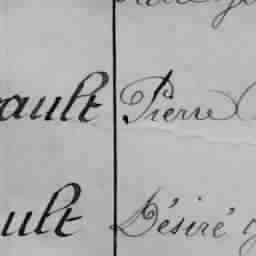 ault Pierre
ult Désiré